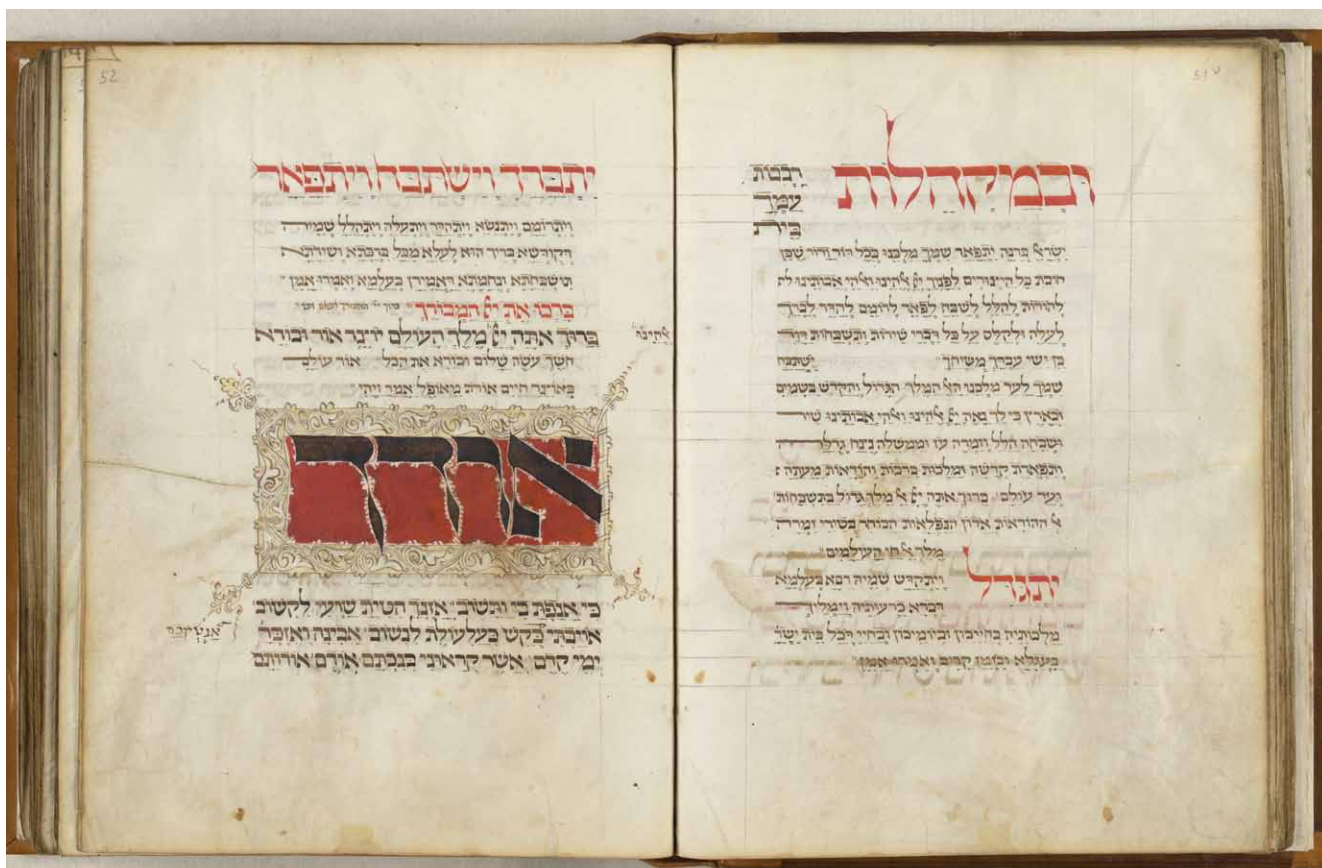 51v
ובמקהלות
רבבות
עמך
בית
ישראל ברנה יתפאר שמך מלכנו בכל דור ודור שכן
חובת כל היצורים לפניך אלהינו ואלהי אבותינו
להודות להלל לשבח לפאר לרומם להדר לברך
לעלה ולקלס על כל דברי שירות ותשבחות דוד
בן ישי עבדך משיחך ישתבח
שמך לעד מלכנו המלך הגדול והקדש בשמים
ובארץ כי לך נאה אלהינו ואלהי אבותינו שיר
ושבחה הלל וזמרה עז וממשלה נצח גדלה
ותפארת קדשה ומלכות ברכות והודאות מעתה
ועד עולם ברוך אתה מלך גדול בתשבחות
ההודאות אדון הנפלאות הבוחר בשירי זמרה
מלך חי העולמים
יתגדל
ויתקדש שמיה רבא בעלמא
דברא כרעותיה וימליך
מלכותיה בחייכון וביומיכון ובחיי דכל בית ישר
בעגלא ובזמן קריב ואמרו אמן
52
יתברך וישתבח ויתפאר
ויתרומם ויתנשא ויתהדר ויתעלה ויתהלל שמיה
דקודשא בריך הוא לעלא מכל ברכתא ושירתא
תושבחתא ונחמתא דאמירן בעלמא ואמרו אמן
ברכו את המבורך
ברוך אתה מלך העולם יוצר אור ובורא
אלהינו
חשך עשה שלום ובורא את הכל אור עולם
באוצר חיים אורות מאופל אמר ויהי
אודך
כי אנפת בי ותשוב אזנך הטית שועי לקשוב
אויבתי בקש בעלעולת לנשוב אבינה ואזכר
ימי קדם אשר קראתי